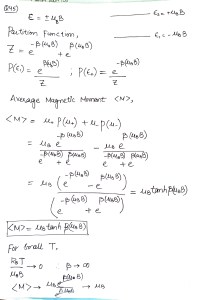 Q45)
ε = ± μ_B B
ε₊ = +μ_B B
ε₋ = -μ_B B
Partition Function,
Z = e^{-β(μ_B B)} + e^{β(μ_B B)}
P(ε₋) = e^{β(μ_B B)} / Z ; P(ε₊) = e^{-β(μ_B B)} / Z
Average Magnetic Moment <M>,
<M> = μ₊ P(μ₊) + μ₋ P(μ₋)
= μ_B e^{-β(μ_B B)} / (e^{-β(μ_B B)} + e^{β(μ_B B)}) - μ_B e^{β(μ_B B)} / (e^{-β(μ_B B)} + e^{β(μ_B B)})
= μ_B (e^{-β(μ_B B)} - e^{β(μ_B B)}) / (e^{-β(μ_B B)} + e^{β(μ_B B)}) = μ_B tanh β(μ_B B)
<M> = μ_B tanh β(μ_B B)
For Small T,
k_B T / μ_B B → 0 β → ∞
<M> → → μ_B